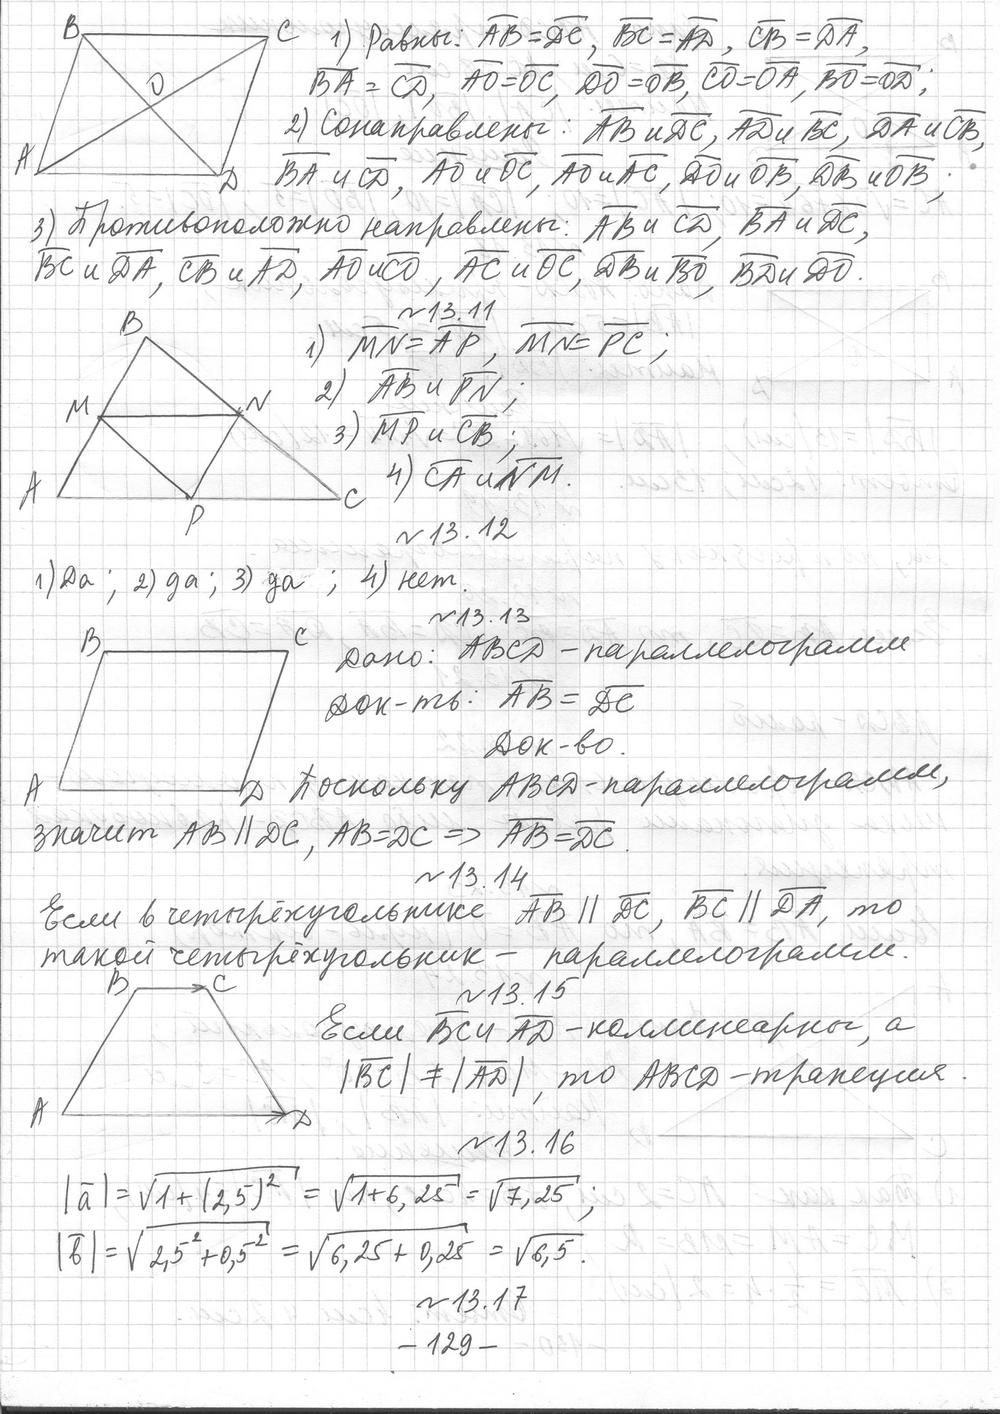 B C O A D
1) Равны: A̅B̅=D̅C̅, B̅C̅=A̅D̅, C̅B̅=D̅A̅,
B̅A̅=C̅D̅, A̅O̅=O̅C̅, D̅O̅=O̅B̅, C̅O̅=O̅A̅, B̅O̅=O̅D̅;
2) Сонаправлены: A̅B̅ и D̅C̅, A̅D̅ и B̅C̅, D̅A̅ и C̅B̅,
B̅A̅ и C̅D̅, A̅O̅ и O̅C̅, A̅O̅ и A̅C̅, D̅O̅ и O̅B̅, D̅B̅ и O̅B̅;
3) Противоположно направлены: A̅B̅ и C̅D̅, B̅A̅ и D̅C̅,
B̅C̅ и D̅A̅, C̅B̅ и A̅D̅, A̅O̅ и C̅O̅, A̅C̅ и O̅C̅, D̅B̅ и B̅O̅, B̅D̅ и D̅O̅.
~13.11
B M N A P C
1) M̅N̅=A̅P̅, M̅N̅=P̅C̅;
2) A̅B̅ и P̅N̅;
3) M̅P̅ и C̅B̅;
4) C̅A̅ и N̅M̅.
~13.12
1) Да; 2) да; 3) да; 4) нет.
~13.13
B C A D
Дано: ABCD - параллелограмм
Док-ть: A̅B̅ = D̅C̅
Док-во.
Поскольку ABCD-параллелограмм,
значит AB || DC, AB=DC => A̅B̅=D̅C̅.
~13.14
Если в четырёхугольнике A̅B̅ || D̅C̅, B̅C̅ || D̅A̅, то
такой четырёхугольник - параллелограмм.
~13.15
B C A D
Если B̅C̅ и A̅D̅ -коллинеарны, а
|B̅C̅| ≠ |A̅D̅|, то ABCD-трапеция.
~13.16
|a̅| = √1+(2,5)² = √1+6,25 = √7,25;
|b̅| = √2,5²+0,5² = √6,25+0,25 = √6,5.
~13.17
-129-